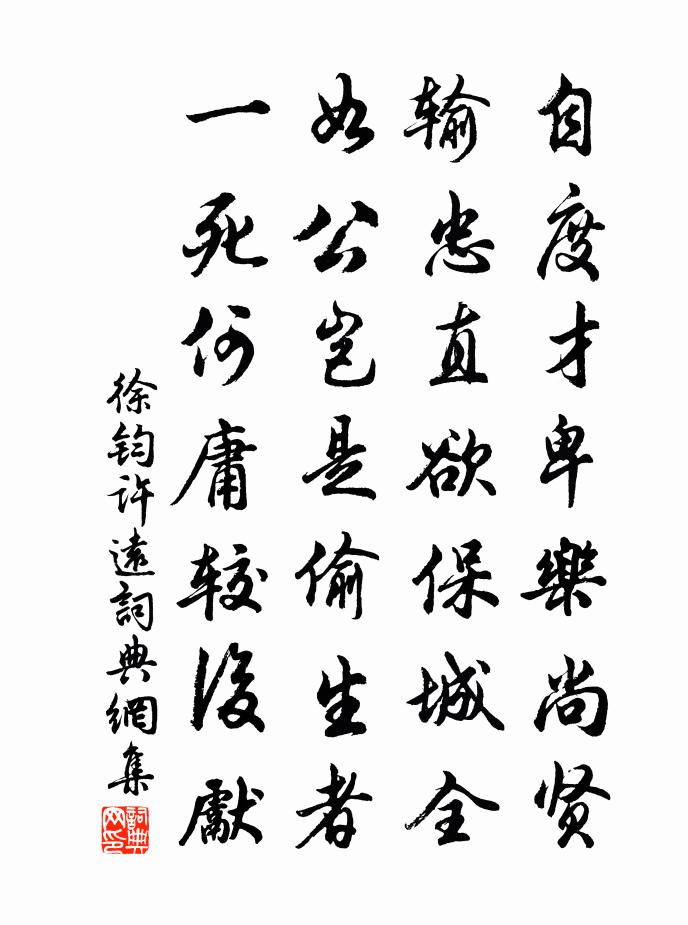 自度才卑樂尚贤
输忠直欲保城全
如公岂是偷生者
一死何庸较後獻
徐钧许遠詞典網集
詞典网印